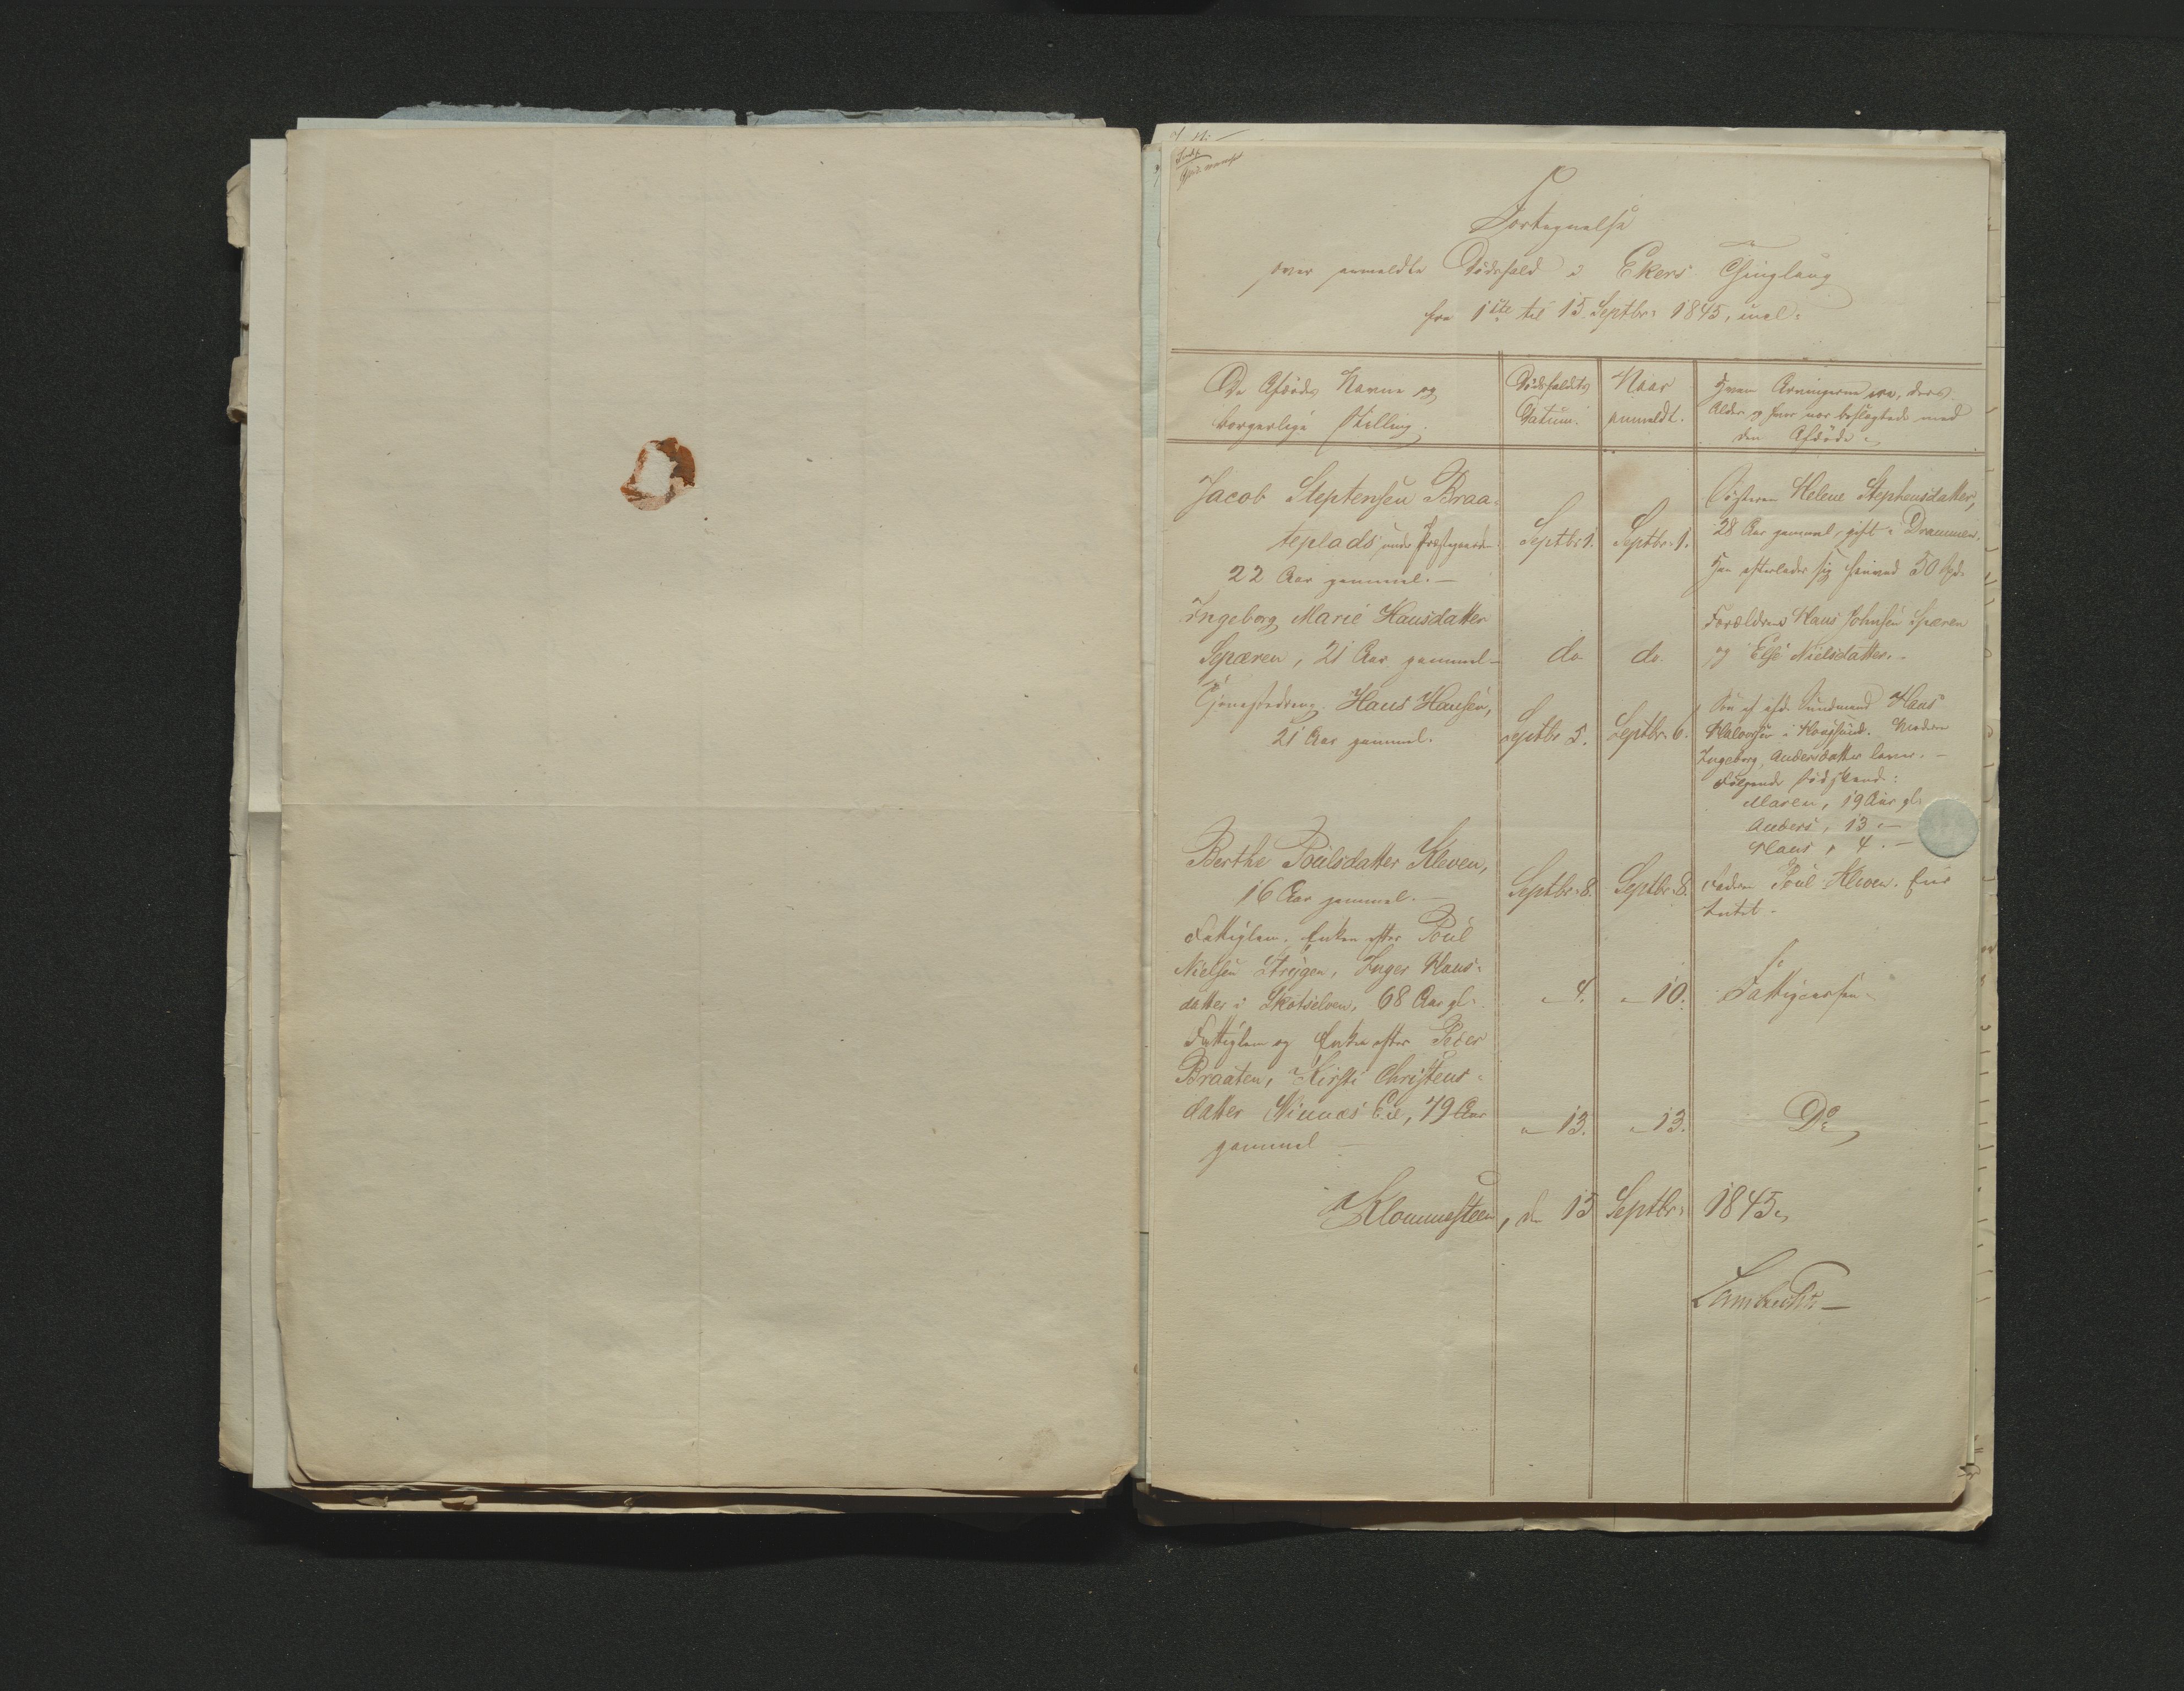 Fortegnelse
over anmeldte Dødsfald i Ekers Thinglaug
fra 1ste til 15 Septbr: 1845, incl:
De Afdødes Navne og
borgerlige Stilling.
Dødsfaldets
Datum.
Naar
anmeldt.
Hvem Arvingerne ere, deres
Alder og hvor nær beslægtede med
den Afdøde
Jacob Stephensen Braa-
teplads under Præstegaarden
22 Aar gammel. —
Septbr 1.
Septbr: 1.
Søsteren Helene Stephensdatter,
28 Aar gammel, gift i Drammen.
Han efterlader sig henved 50 Spd.
Ingeborg Marie Hansdatter
Speren, 21 Aar gammel —
do
do.
Forældrene Hans Johnsen Speren
og Else Nielsdatter. —
Tjenestedreng Hans Hansen,
21 Aar gammel.
Septbr 5.
Septbr. 6.
Søn af afd. Sundmand Hans
Halvorsen i Haugsund. Moderen
Ingeborg Andersdatter lever. —
Følgende Sødskende:
Maren, 19 Aar gl:
Anders, 13 " —
Hans, 4 " —
Berthe Poulsdatter Kleven,
16 Aar gammel. —
Septbr: 8.
Septbr: 8.
Faderen Poul Kleven. Eier
Intet.
Fattiglem, Enken efter Poul
Nielsen Strygen, Inger Hans-
datter i Skotselven, 68 Aar gl:
" 4.
" 10.
Fattigcassen
Fattiglem og Enke efter Peder
Braaten, Kirsti Christens-
datter Eie, 79 Aar
gammel —
" 13.
" 13.
Do
Klommesteen, d 15 Septbr: 1845
Lambrechts —